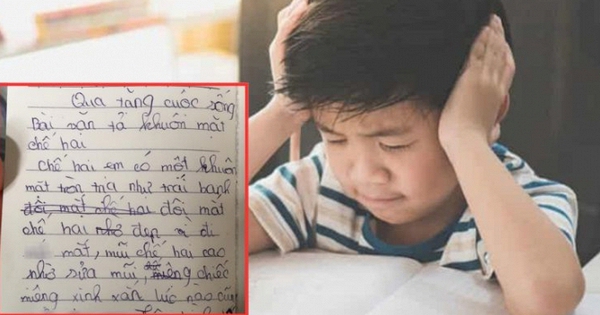 Qua tặng cuộc sống
Bài văn tả khuôn mặt
chế hai
Chế hai em có một khuôn
mặt tròn trịa như trái banh
đôi mắt chế hai đôi mắt
chế hai nhỏ đẹp
mắt, mũi chế hai cao
nhờ sửa mũi, miệng chiếc
miệng xinh xắn lúc nào cũng